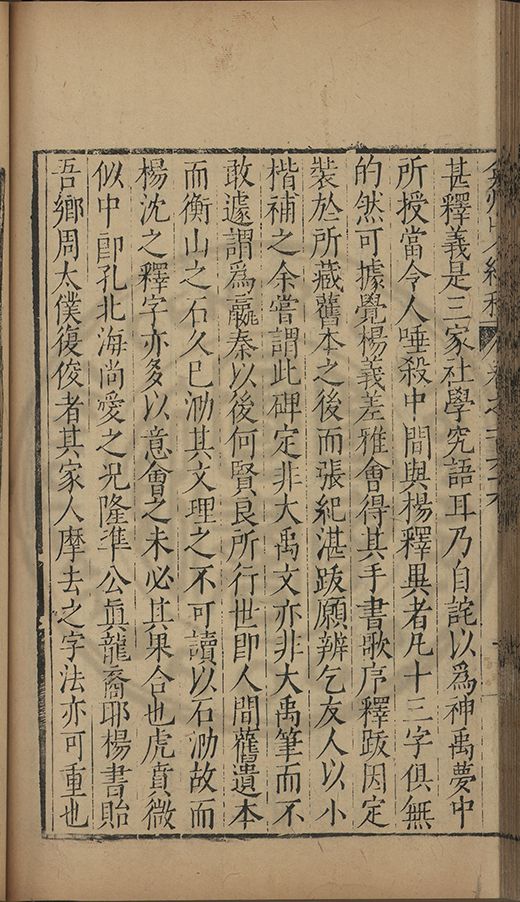 甚釋義是三家社學究語耳乃自詫以爲神禹夢中
所授當令人唾殺中間與楊釋異者凡十三字俱無
的然可據覺楊義差雅會得其手書歌序釋跋因定
裝於所藏舊本之後而張紀湛跋願辨乞友人以小
楷補之余嘗謂此碑定非大禹文亦非大禹筆而不
敢遽謂爲嬴秦以後何賢良所行世卽人間舊遺本
而衡山之石久已泐其文理之不可讀以石泐故而
楊沈之釋字亦多以意會之未必其果合也虎賁微
似中郎孔北海尚愛之况隆準公眞龍裔耶楊書貽
吾鄉周太僕復俊者其家人摩去之字法亦可重也